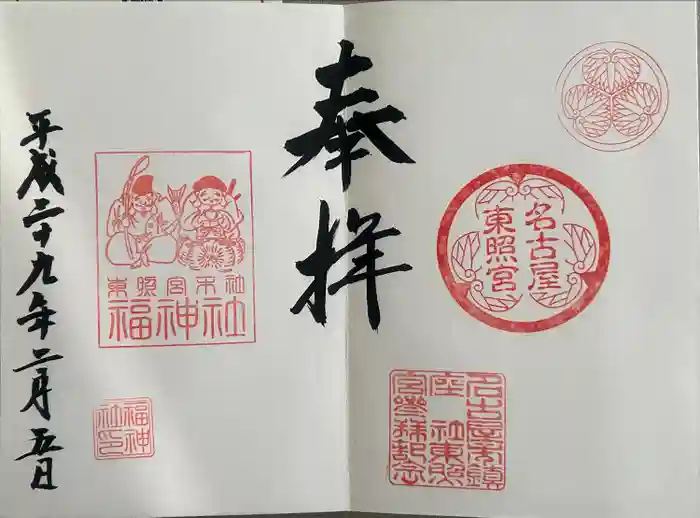 奉拝
名古屋
東照宮
名古屋市鎮
座 社東照
宮参拝記念
東照宮末社
福神社
福神
社印
平成二十九年二月五日